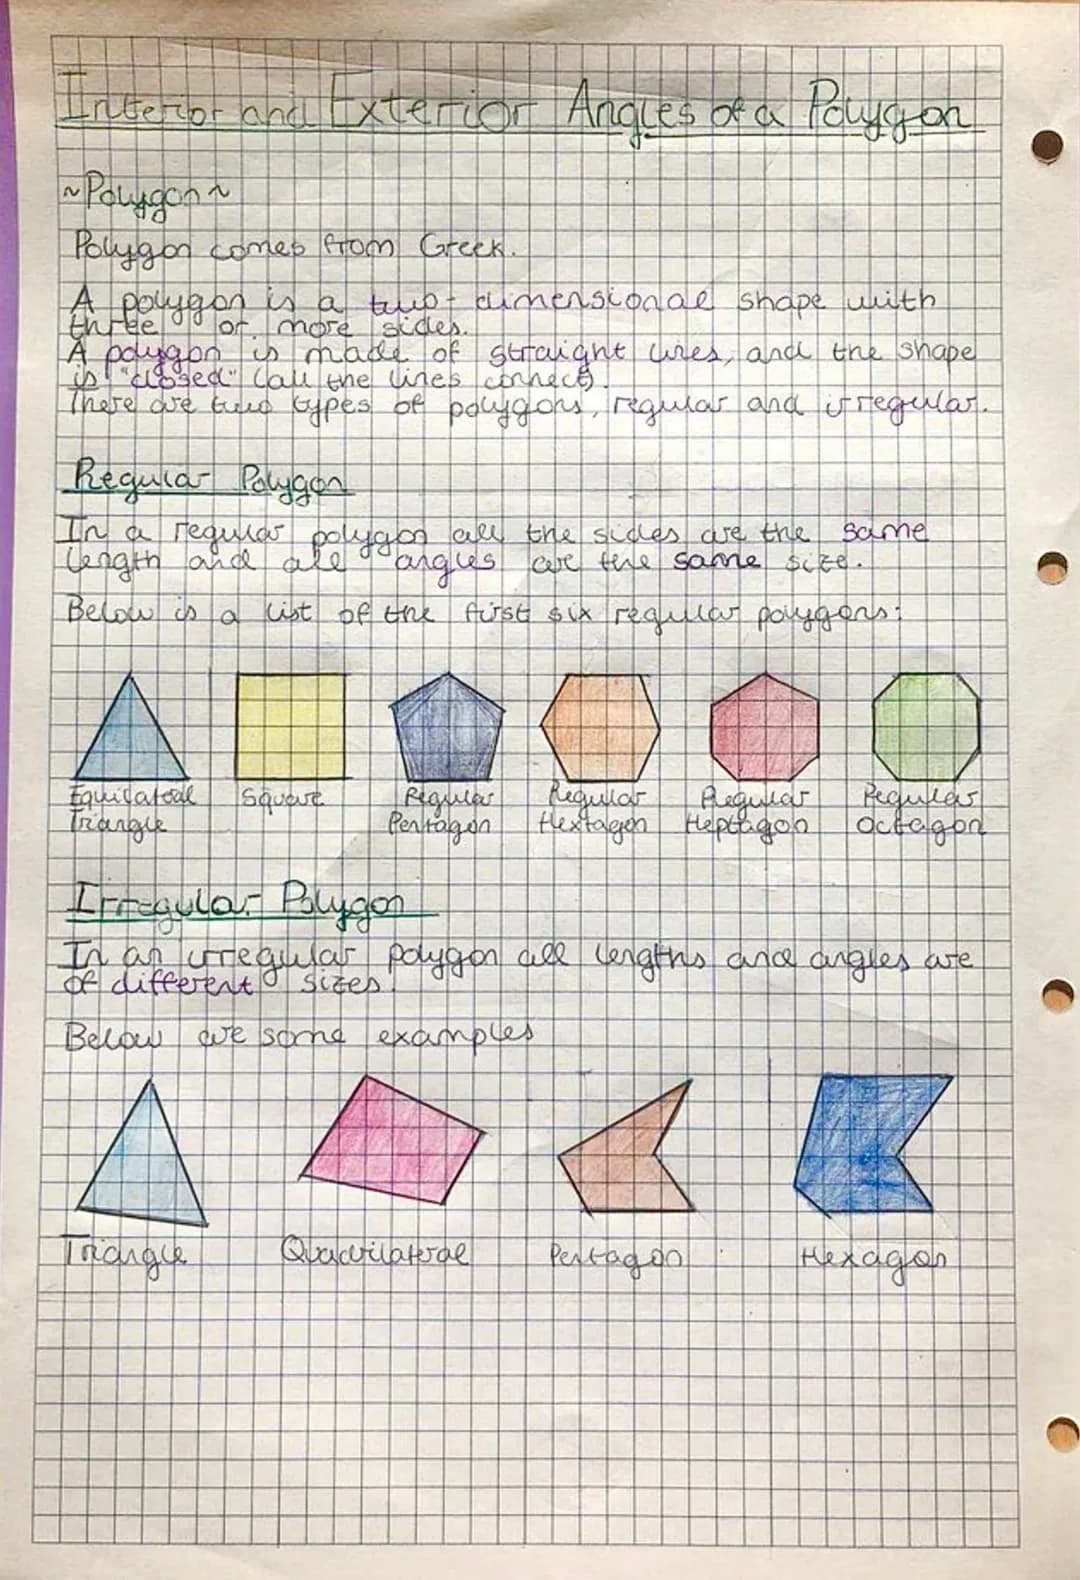 Interior and Exterior Angles of a Polygon
~Polygon~
Polygon comes from Greek.
A polygon is a two-dimensional shape with
three or more sides.
A polygon is made of straight lines, and the shape
is "closed" (all the lines connect).
There are two types of polygons, regular and irregular.
Regular Polygon
In a regular polygon all the sides are the same
length and all angles are the same size.
Below is a list of the first six regular polygons:
Equilateral Square Regular Regular Regular Regular
Triangle Pentagon Hextagon Heptagon Octagon
Irregular Polygon
In an irregular polygon all lengths and angles are
of different sizes.
Below are some examples
Triangle Quadrilateral Pentagon Hexagon